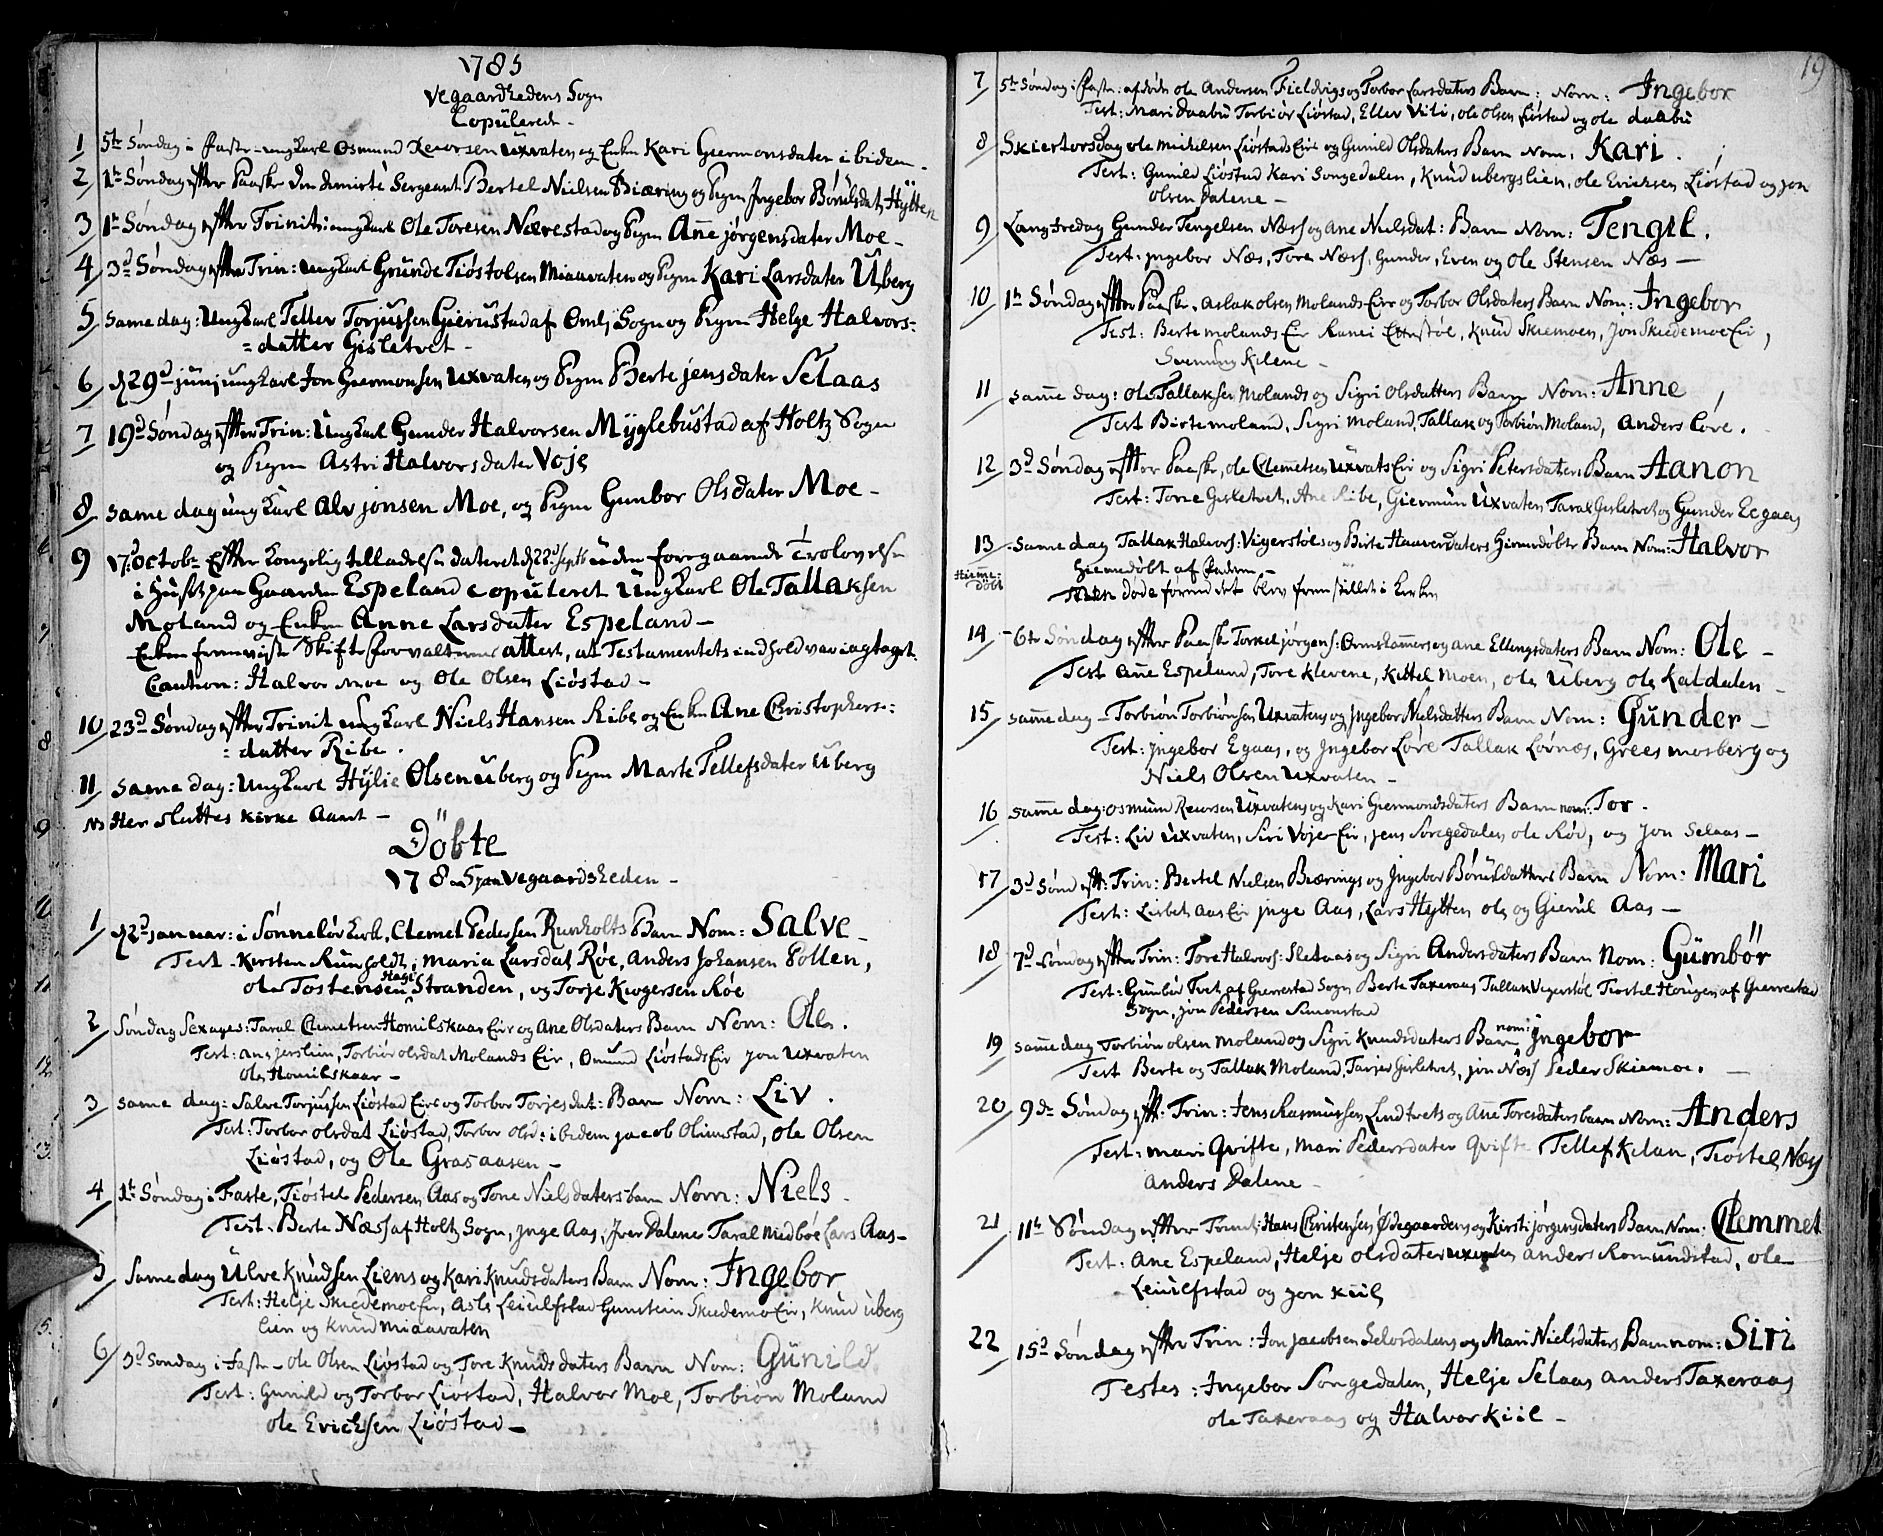 1785
Vegaardshedens Sogn
Copulerede -
1 5te Søndag i Faste - ungkarl Osmund Reiersen Uxvaten og Enken Kari Giermonsdater ibidem
2 1te Søndag efter Paaske den dimiterte Sergeant Bertel Nielsen Biæring og Pigen Ingebor Børulsdat: Hÿtten
3 1te Søndag efter Trinit: ungkarl Ole Toresen Nærestad og Pigen Anne jørgensdater Moe -
4 3de Søndag efter Trin: Ungkarl Gunde Tiøstolsen Miaavaten og Pigen Kari Larsdater Uberg
5 same dag: Ungkarl Tellev Torjussen Gierustad af Omli Sogn og Pigen Helge Halvors-
= datter Gisletvet -
6 d 29de junj ungkarl Jon Giermonsen Uxvaten og Pigen Berte jensdater Selaas
7 19de Søndag efter Trin: Ungkarl Gunder Halvorsen Mÿglebustad af Holtz Sogn
og Pigen Astri Halvorsdater Voje
8 same dag ung karl Alv jonsen Moe, og Pigen Gunbor Olsdater Moe -
9 17de Octobr Efter kongelig tilladelse dateret d 22de Septbr uden foregaaende Trolovelse
i Huset paa Gaarden Espeland copuleret Ungkarl Ole Tallaksen
Moland og Enken Anne Larsdater Espeland -
Enken fremviste Skifteforvalterens attest, at Testamentets indhold var iagtaget.
Caution: Halvor Moe og Ole Olsen Liøstad -
10 23de Søndag efter Trinit ungkarl Niels Hansen Ribe og Enken Ane Christophers-:
= datter Ribe.
11 same dag: Ungkarl Hÿlje Olsen Uberg og Pigen Marte Tellefsdater Uberg
NB Her sluttes Kirke Aaret -
Döbte
1785 paa Vegaardsheden -
1 d 2de januar: i Sønneløv kirke, Clemet Pedersen Runholts Barn Nom: Salve -
Test - Kirsten Runholdt, Maria Larsdat Røe, Anders Johansen Potten,
ole Tostensen Hage Stranden, og Torje Kiogersen Røe
2 Søndag Sexages: Taral Clemetsen Homilskaar Eir og Ane Olsdaters Barn Nom: Ole.
Test: ane jerslien, Torbiør olsdat Molands Eir, Omund Liøstads Eir jon Uxvaten
ole Homilskaar -
3 same dag: Salve Torjussen Liøstad Eir og Torbor Torjesdat: Barn Nom: Liv.
Test: Torbor olsdat Liøstad, Torbor olsd: ibidem jacob Olimstad, ole Olsen
Liøstad, og Ole Grasaasen -
4 1te Søndag i Faste, Tiøstel Pedersen Aas og Tone Nielsdaters barn Nom: Niels -
Test. Berte Næss af Holtz Sogn, jnge Aas, jver Dalene Taral Midbøe Lars Aas -
5 same dag Ulve Knudsen Liens og Kari Knudsdaters Barn Nom: Ingebor
Test: Helje Skiedemoe Eir, Asle Leiulfstad Gunstein Skiedemo Eir, Knud Uberg
lien og Knud Miaavaten
6 3de Søndag i Faste - Ole Olsen Liøstad og Tore Knudsdaters Barn Nom: Gunild
Test: Gunild og Torbor Liøstad, Halvor Moe, Torbiøn Moland
ole Erichsen Liøstad -
19
7 5te Søndag i Faste: ole Andersen Fieldvigs og Torbor Larsdaters Barn: Nom: Ingebor
Test: Mari Daabu Torbiør Liøstad, Ellev Viti, ole olsen Liøstad og ole daabu
8 Skiertorsdag ole Michelsen Liøstads Eir og Gunild Olsdaters Barn Nom: Kari.
Test: Gunild Liøstad Kari Songedalen, Knud Ubergslien, ole Ericksen Liøstad og jon
olsen Dalene -
9 Langfredag Gunder Tengelsen Næss og Ane Nielsdat: Barn Nom: Tengel.
Test: jngebor Næs, Tore Næss, Gunder, Even og Ole Stensen Næs -
10 1te Søndag efter Paaske. Aslak olsen Molands Eir og Torbor Olsdaters Barn Nom: Ingebor
Test: Berte molands Eir Ranei Ernstøl, Knud Skiemoen, Jon Skiedemoe Ei,
Svenung Kilene -
11 same dag: Ole Tallaksen Molands og Sigri Olsdatters Barn Nom: Anne,
Test Birte moland, Sigri Moland, Tallak og Torbiøn Moland, Anders Løve.
12 3de Søndag efter Paaske, ole Clemetsen Uxvats Eir og Sigri Petersdaters Barn Aanon
Test: Tone Gisletvet, Ane Ribe, Giermun Uxvaten Taral Gisletvet og Gunder Eegaas
13 same dag Tallak Halvors: Vigerstøls og Birte Haaversdaters hiemedøbte Barn Nom: Halvor
Hieme-
døbt
hiemedøbt af Faderen -
Men døde førend det blev fremstillet i Kirken
14 6te Søndag efter Paaske Torkel jørgens: Ormskamers og ane Ellingsdaters Barn Nom: Ole -
Test Ane Espeland, Tore Klevene, Kittel Moen, ole Uberg ole Kaldalen -
15 same dag - Torbiøn Torbiønsen Uxvatens og jngebor Nielsdatters Barn Nom: Gunder -
Test: jngebor Egaas, og Jngebor Løve Tallak Løvnæs, Grees mosberg og
Niels Olsen Uxvaten -
16 same dag: Osmund Reiersen Uxvatens og Kari Giermondsdaters Barn nom: Tor.
Test: Liv Uxvaten, Siri Voje Eir, jens Songedalen ole Røe, og Jon Selaas -
17 3de Sønd eft: Trin: Bertel Nielsen Biærings og Jngebor Børulsdatters Barn Nom: Mari
Test: Lisbet Aas Eir jnge Aas, Lars Hÿtten ole og Gierul Aas -
18 7de Søndag efter Trin: Tore Halvors: Sletaas og Sigri Andersdaters Barn Nom: Gümbör
Test: Gunbor Tvet af Gierrestad Sogn Berte Taxeraas Tallak Vigerstøl Tiostel Hougen af Gierrestad
Sogn, jon Pedersen Simonstad
19 same dag Torbiøn olsen moland og Sigri Knudsdaters Barn nom: Jngebor
Test Berte og Tallak Moland, Tarjer Gisletvet, jon Næss Peder Skiemoe.
20 9de Søndag eft. Trin: Jens Rasmussen Lindtvets og Ane Toresdaters barn Nom: Anders
Test: mari Qvifte, Mari Pedersdater Qvifte Tellef Kilan, Tiøstel Næss
Anders Dalene -
21 11te Søndag efter Trinit: Hans Christensen Ødegaardens og Kirsti jørgensdaters Barn Nom: Clemmet
Test: Ane Espeland, Helje Olsdater Uxvaten anders Romundstad, ole
Leiulfstad og jon Kiil
22 15de Søndag efter Trin: Jon jacobsen Selvordalens og Mari Nielsdaters Barn nom: Siri
Testes: Ingebor Songedalen, Helje Selaas anders Taxeraas
ole Taxeraas og Halvor Kiil -